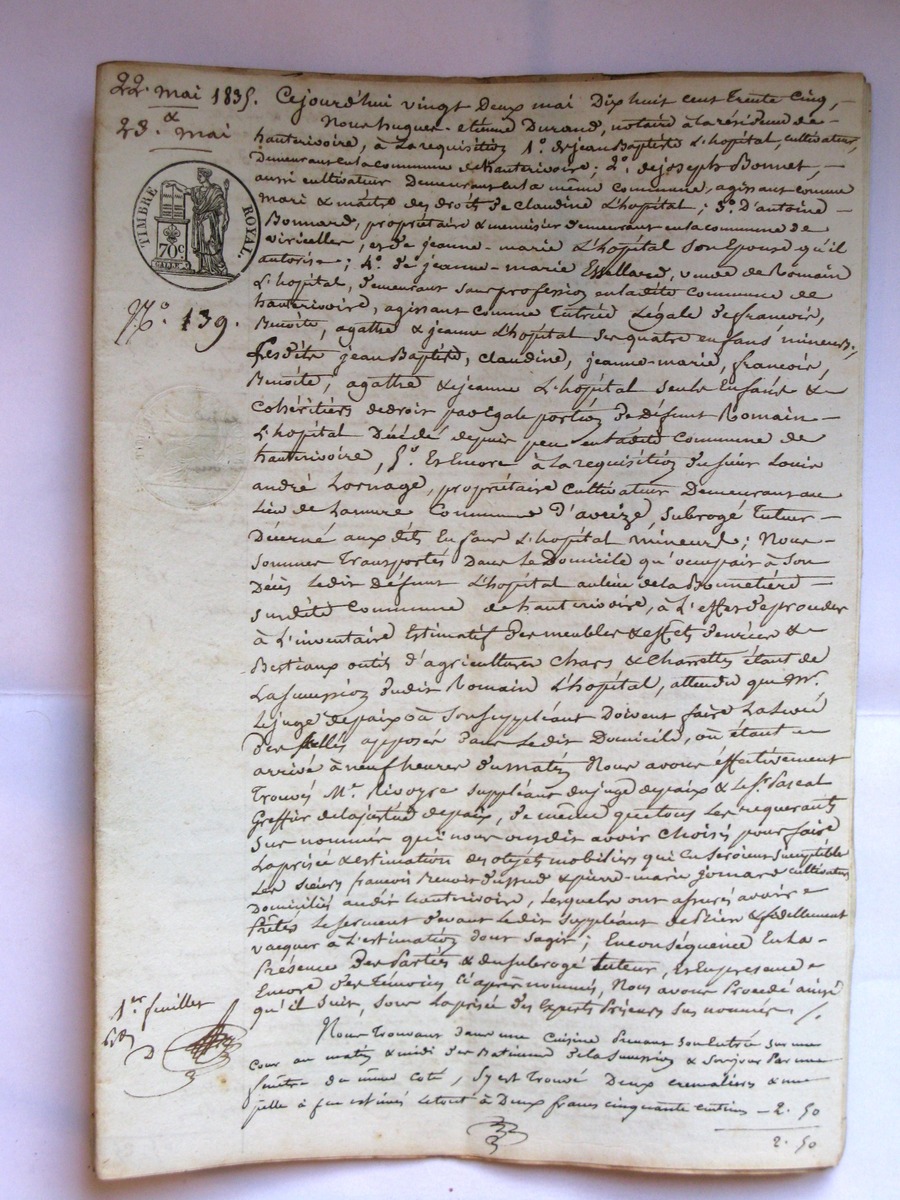 22. mai 1835.
& 23. mai
TIMBRE ROYAL.
70c
N.o 139.
Cejourd'hui vingt Deux mai Dix huit cent trente Cinq,
Nous hugues-etienne Durand, notaire à la résidence de
hauterivoire, à la requisition 1.o de jean Baptiste L'hopital, cultivateur,
Demeurant en la commune de hauterivoire; 2.o de joseph Bonnet,
aussi cultivateur Demeurant en la même commune, agissant comme
mari & maître des droits de Claudine L'hopital; 3.o D'antoine
Bonnard, propriétaire & menuisier demeurant en la commune de
viricelles, et de jeanne-marie L'hopital son Epouse qu'il
autorise; 4.o de jeanne-marie veuve de Romain
L'hopital, demeurant sans profession en ladite commune de
hauterivoire, agissant comme tutrice Légale de francois,
Benoite, agathe & jeanne L'hopital ses quatre enfans mineurs;
Lesdits jean Baptiste, Claudine, jeanne-marie, francois,
Benoite, agathe & jeanne L'hopital seuls Enfans &
cohéritiers de droit par Egale portion de Défunt Romain
L'hopital Décédé depuis peu en ladite commune de
hauterivoire, 5.o Et Encore à la requisition du sieur Louis
andré Lornage, propriétaire cultivateur Demeurant au
Lieu de Lamure Commune D'aveize, subrogé tuteur
Décerné aux dits Enfans L'hopital mineurs; Nous
sommes transportés Dans le Domicile qu'occupait à son
Décès ledit défunt L'hopital au lieu de la Bonnetière
susdite Commune de hauterivoire, à L'effet de procéder
à L'inventaire Estimatif des meubles & effets denrées &
Bestiaux outils d'agriculture chars & charrettes étant de
La succession dudit Romain L'hopital, attendu que Mr.
Le juge de paix ou son suppléant Doivent faire La levée
Des scellés apposés dans ledit Domicile, où étant
arrivé à neuf heures du matin Nous avons effectivement
trouvés Mr. Rivoyre suppléant du juge de paix & le Sr. Pascal
Greffier de la justice de paix, de même que tous les requerants
sus nommés qui nous ont dit avoir choisis pour faire
La prisée & estimation des objets mobiliers qui en seroient susceptibles
Les sieurs francois Benoit & pierre-marie jomard cultivateurs
Domiciliés audit hauterivoire, lesquels ont assurés avoir
Prêtés le serment devant ledit suppléant de Bien & fidellement
vacquer à L'estimation dont s'agit; En conséquence En la
Présence des Parties & du subrogé tuteur, Et En presence
Encore des témoins ci après nommés, Nous avons Procedé ainsi
qu'il suit, sous la prisée des Experts Priseurs sus nommés
1er feuillet
D
Nous trouvant dans une Cuisine Prenant son Entrée sur une
Cour au matin & midi des Batimens de la succession & son jour Par une
fenêtre du même coté, s'y est trouvé Deux cremaliers & une
pelle à feu estimés le tout à Deux francs cinquante centimes - 2. 50
2. 50